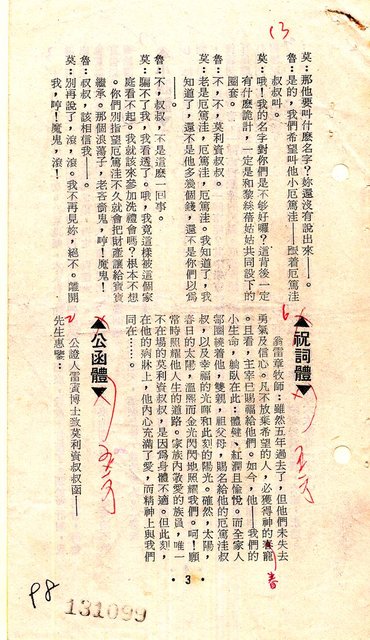 13
莫：那他要叫什麼名字？妳還沒有說出來——。
魯：是的，我們希望叫他小厄篤洼——跟着厄篤洼
叔叔叫。
莫：哦！我的名字對你們是不够好囉？這背後一定
有什麼詭計，一定是和黎絲蓓姑姑共同設下的
圈套。
魯：不，不，莫利資叔叔。
莫：老是厄篤洼，看厄篤洼，厄篤洼。我知道了，我
知道了，還不是他多幾個錢，還不是你們以為
——。
魯：不，叔叔，不是這麼一回事。
莫：騙不了我，我看透了。哦，我竟這樣被這個家
庭看不起。我就該來參加洗禮會嗎？根本不想
。你們別指望厄篤洼不久就會把財產讓給寶寶
繼承。那個浪蕩子，老吝嗇鬼，哼！魔鬼！
魯：叔叔，該相信我——。
莫：別再說了，滾，滾。我不再見妳，絕不。離開
我，哼！魔鬼，滾！
6
▲祝詞體▼
翁雷章牧師：雖然五年過去了，但他們未失去
勇氣及信心。凡不放棄希望的人，必獲得神的寵
。且看，主宰已賜福給他們。如今，他——我們的
小生命，躺臥在此：體健、紅潤且愉悅。而全家人
都圍繞着他，雙親，祖父母，賜名給他的厄篤洼叔
叔，以及幸福的光暉和此刻的陽光。確然，太陽，
春日的太陽，溫熙而金光閃閃地照耀我們。呵！願
常時照耀他人生的道路。家族內敬愛的族員，唯一
不在場的莫利資叔叔，是因為身體不適。但此刻，
在他的病牀上，他內心充滿了愛，而精神上與我們
同在……。
▲公函體▼
公證人雷寅博士致莫利資叔叔函——
先生惠鑒：
·3·
P8
131099